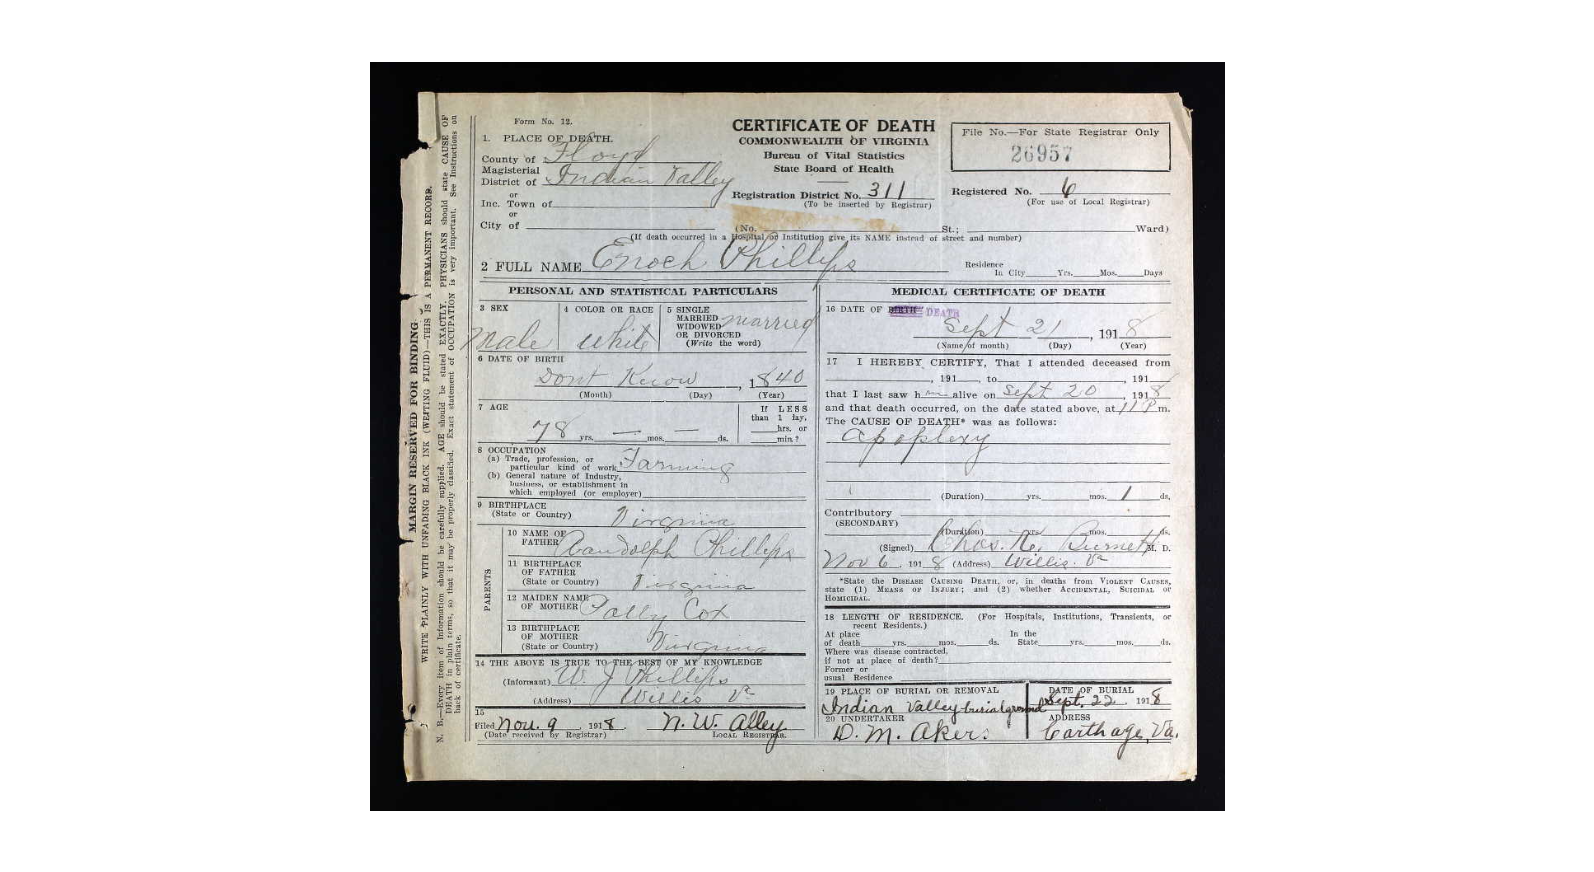 Form No. 12.
1. PLACE OF DEATH.
County of Floyd
Magisterial
District of Indian Valley
or
Inc. Town of
or
City of
CERTIFICATE OF DEATH
COMMONWEALTH OF VIRGINIA
Bureau of Vital Statistics
State Board of Health
Registration District No. 311
(To be inserted by Registrar)
File No.—For State Registrar Only
26957
Registered No. 6
(For use of Local Registrar)
(No. St.; Ward)
(If death occurred in a Hospital or Institution give its NAME instead of street and number)
2 FULL NAME Enoch Phillips
Residence
In City Yrs. Mos. Days
PERSONAL AND STATISTICAL PARTICULARS
3 SEX
Male
4 COLOR OR RACE
white
5 SINGLE
MARRIED
WIDOWED
OR DIVORCED
(Write the word)
married
6 DATE OF BIRTH
Dont Know, 1840
(Month) (Day) (Year)
7 AGE
78 yrs. — mos. — ds.
If LESS
than 1 day,
hrs. or
min.?
8 OCCUPATION
(a) Trade, profession, or
particular kind of work Farming
(b) General nature of Industry,
business, or establishment in
which employed (or employer)
9 BIRTHPLACE
(State or Country) Virginia
PARENTS
10 NAME OF
FATHER Randolph Phillips
11 BIRTHPLACE
OF FATHER
(State or Country) Virginia
12 MAIDEN NAME
OF MOTHER Polly Cox
13 BIRTHPLACE
OF MOTHER
(State or Country) Virginia
14 THE ABOVE IS TRUE TO THE BEST OF MY KNOWLEDGE
(Informant) W. J Phillips
(Address) Willis Va
15
Filed Nov. 9, 1918 N. W. Alley
(Date received by Registrar) LOCAL REGISTRAR.
MEDICAL CERTIFICATE OF DEATH
16 DATE OF BIRTH DEATH
Sept 21, 1918
(Name of month) (Day) (Year)
17 I HEREBY CERTIFY, That I attended deceased from
, 191 , to , 191
that I last saw h m alive on Sept 20, 1918
and that death occurred, on the date stated above, at 11 P m.
The CAUSE OF DEATH* was as follows:
Apoplexy
(Duration) yrs. mos. 1 ds.
Contributory
(SECONDARY)
(Duration) yrs. mos. ds.
(Signed) Chas. N. Burnett M. D.
Nov 6, 1918 (Address) Willis. Va
*State the DISEASE CAUSING DEATH, or, in deaths from VIOLENT CAUSES,
state (1) MEANS OF INJURY; and (2) whether ACCIDENTAL, SUICIDAL or
HOMICIDAL.
18 LENGTH OF RESIDENCE. (For Hospitals, Institutions, Transients, or
recent Residents.)
At place In the
of death yrs. mos. ds. State yrs. mos. ds.
Where was disease contracted.
if not at place of death?
Former or
usual Residence
19 PLACE OF BURIAL OR REMOVAL
Indian Valley burial ground
DATE OF BURIAL
Sept. 22 1918
20 UNDERTAKER
D. M. Akers
ADDRESS
Carthage, Va.
MARGIN RESERVED FOR BINDING
WRITE PLAINLY WITH UNFADING BLACK INK (WRITING FLUID)—THIS IS A PERMANENT RECORD.
N. B.—Every item of information should be carefully supplied. AGE should be stated EXACTLY. PHYSICIANS should state CAUSE OF
DEATH in plain terms, so that it may be properly classified. Exact statement of OCCUPATION is very important. See Instructions on
back of certificate.